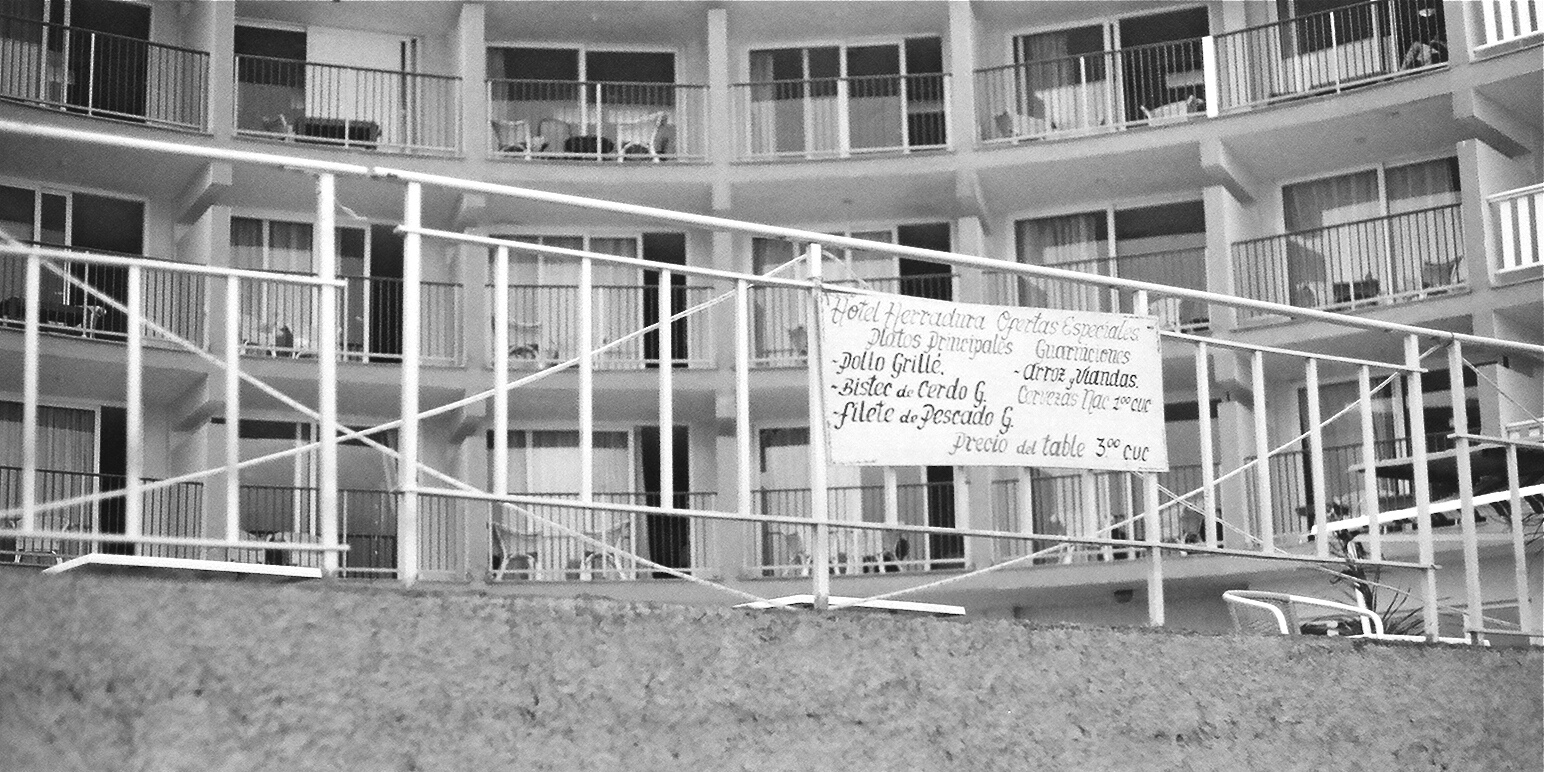 Hotel Herradura Ofertas Especiales.
Platos principales Guarniciones
-Pollo Grillé. -Arroz y Viandas.
-Bistec de Cerdo G. Cervezas Nac 1⁰⁰ CUC
-Filete de Pescado G.
Precio del table 3.⁰⁰ CUC